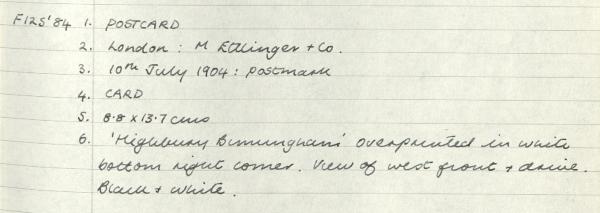 F125'84 1. POSTCARD
2. London : M Ettlinger + Co.
3. 10th July 1904 : postmark
4. CARD
5. 8.8 x 13.7 cms
6. 'Highbury Birmingham' overprinted in white
bottom right corner. View of west front + drive.
Black + white.